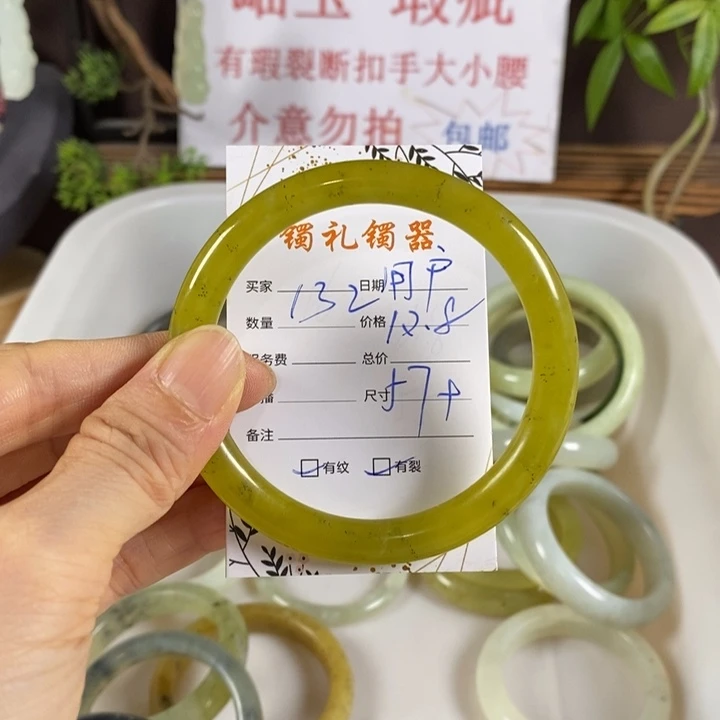 岫玉 瑕疵
有瑕裂断扣手大小腰
介意勿拍 包邮
镯礼镯器
买家 132 日期 用户
数量 价格 12.8
服务费 总价
播 尺寸 57+
备注
有纹 有裂